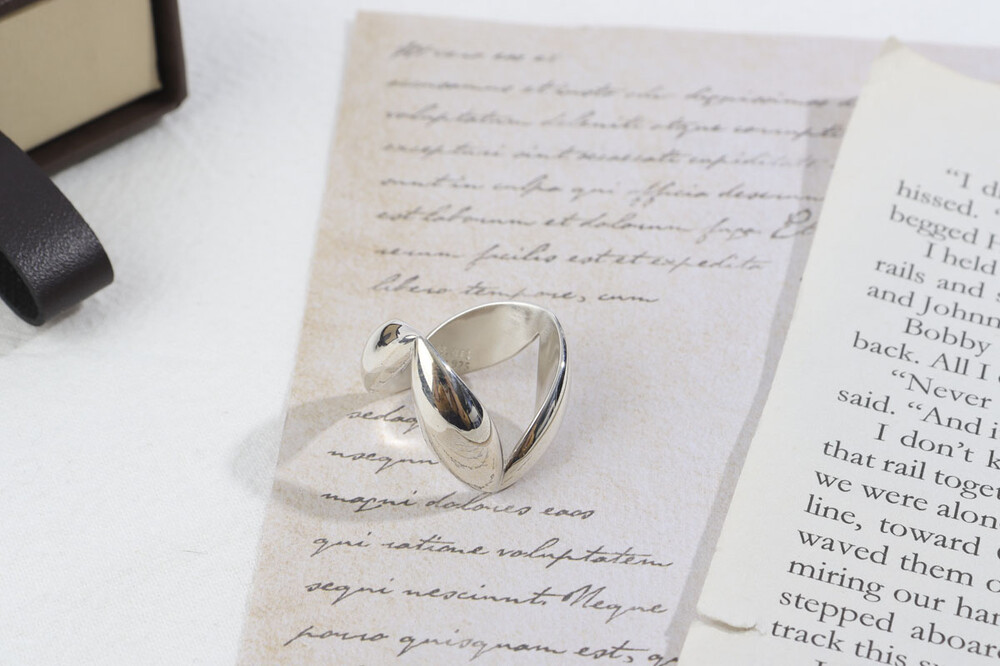 accusamus et iusto odio dignissimos
voluptatum deleniti atque corrupti
excepturi sint occaecati cupiditate
sunt in culpa qui officia deserunt
est laborum et dolorum fuga Et
rerum facilis est et expedita
libero tempore, cum
sedaq
nsequn
magni dolores eaos
qui ratione voluptatem
sequi nesciunt. Neque
porro quisquam est, q
"I d
hissed. "
begged p
I held
rails and
and Johnn
Bobby
back. All I
"Never
said. "And i
I don't k
that rail toget
we were alon
line, toward
waved them o
miring our han
stepped aboar
track this